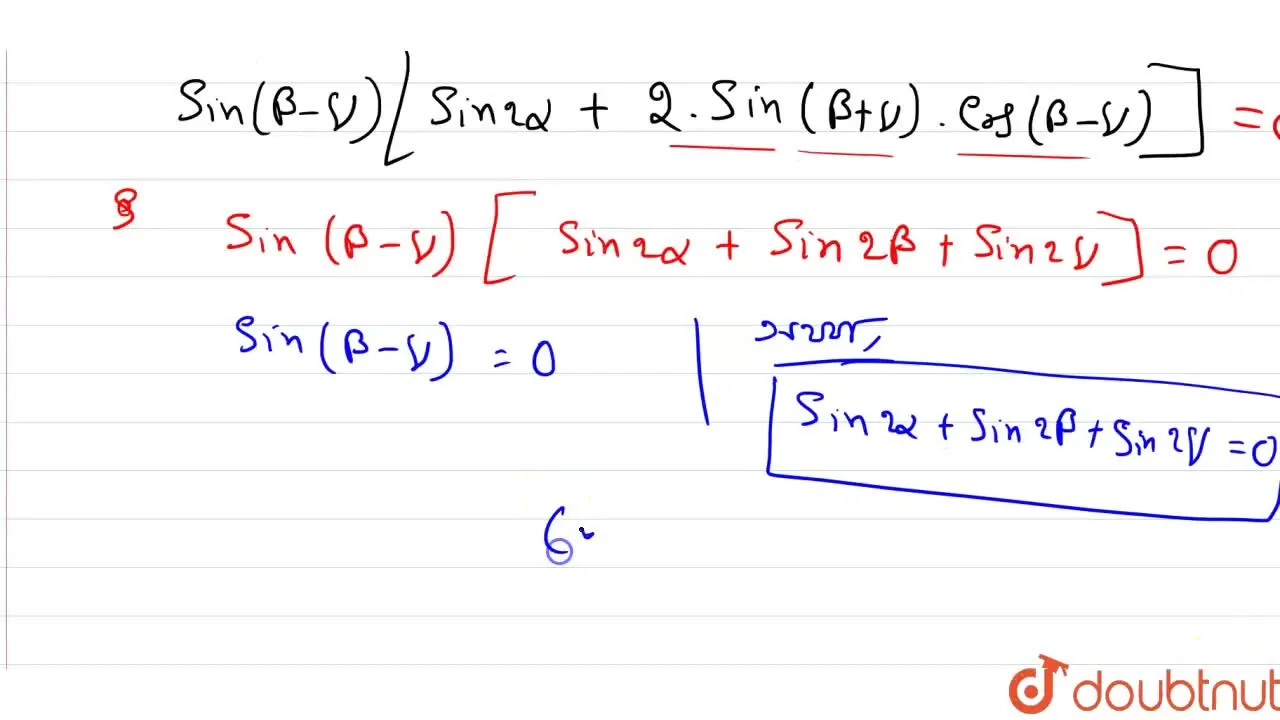 Sin(β-γ)[Sin2α + 2.Sin(β+γ).Cos(β-γ)] =
Sin(β-γ)[Sin2α + Sin2β + Sin2γ] = 0
Sin(β-γ) = 0
অথবা,
Sin2α + Sin2β + Sin2γ = 0
doubtnut